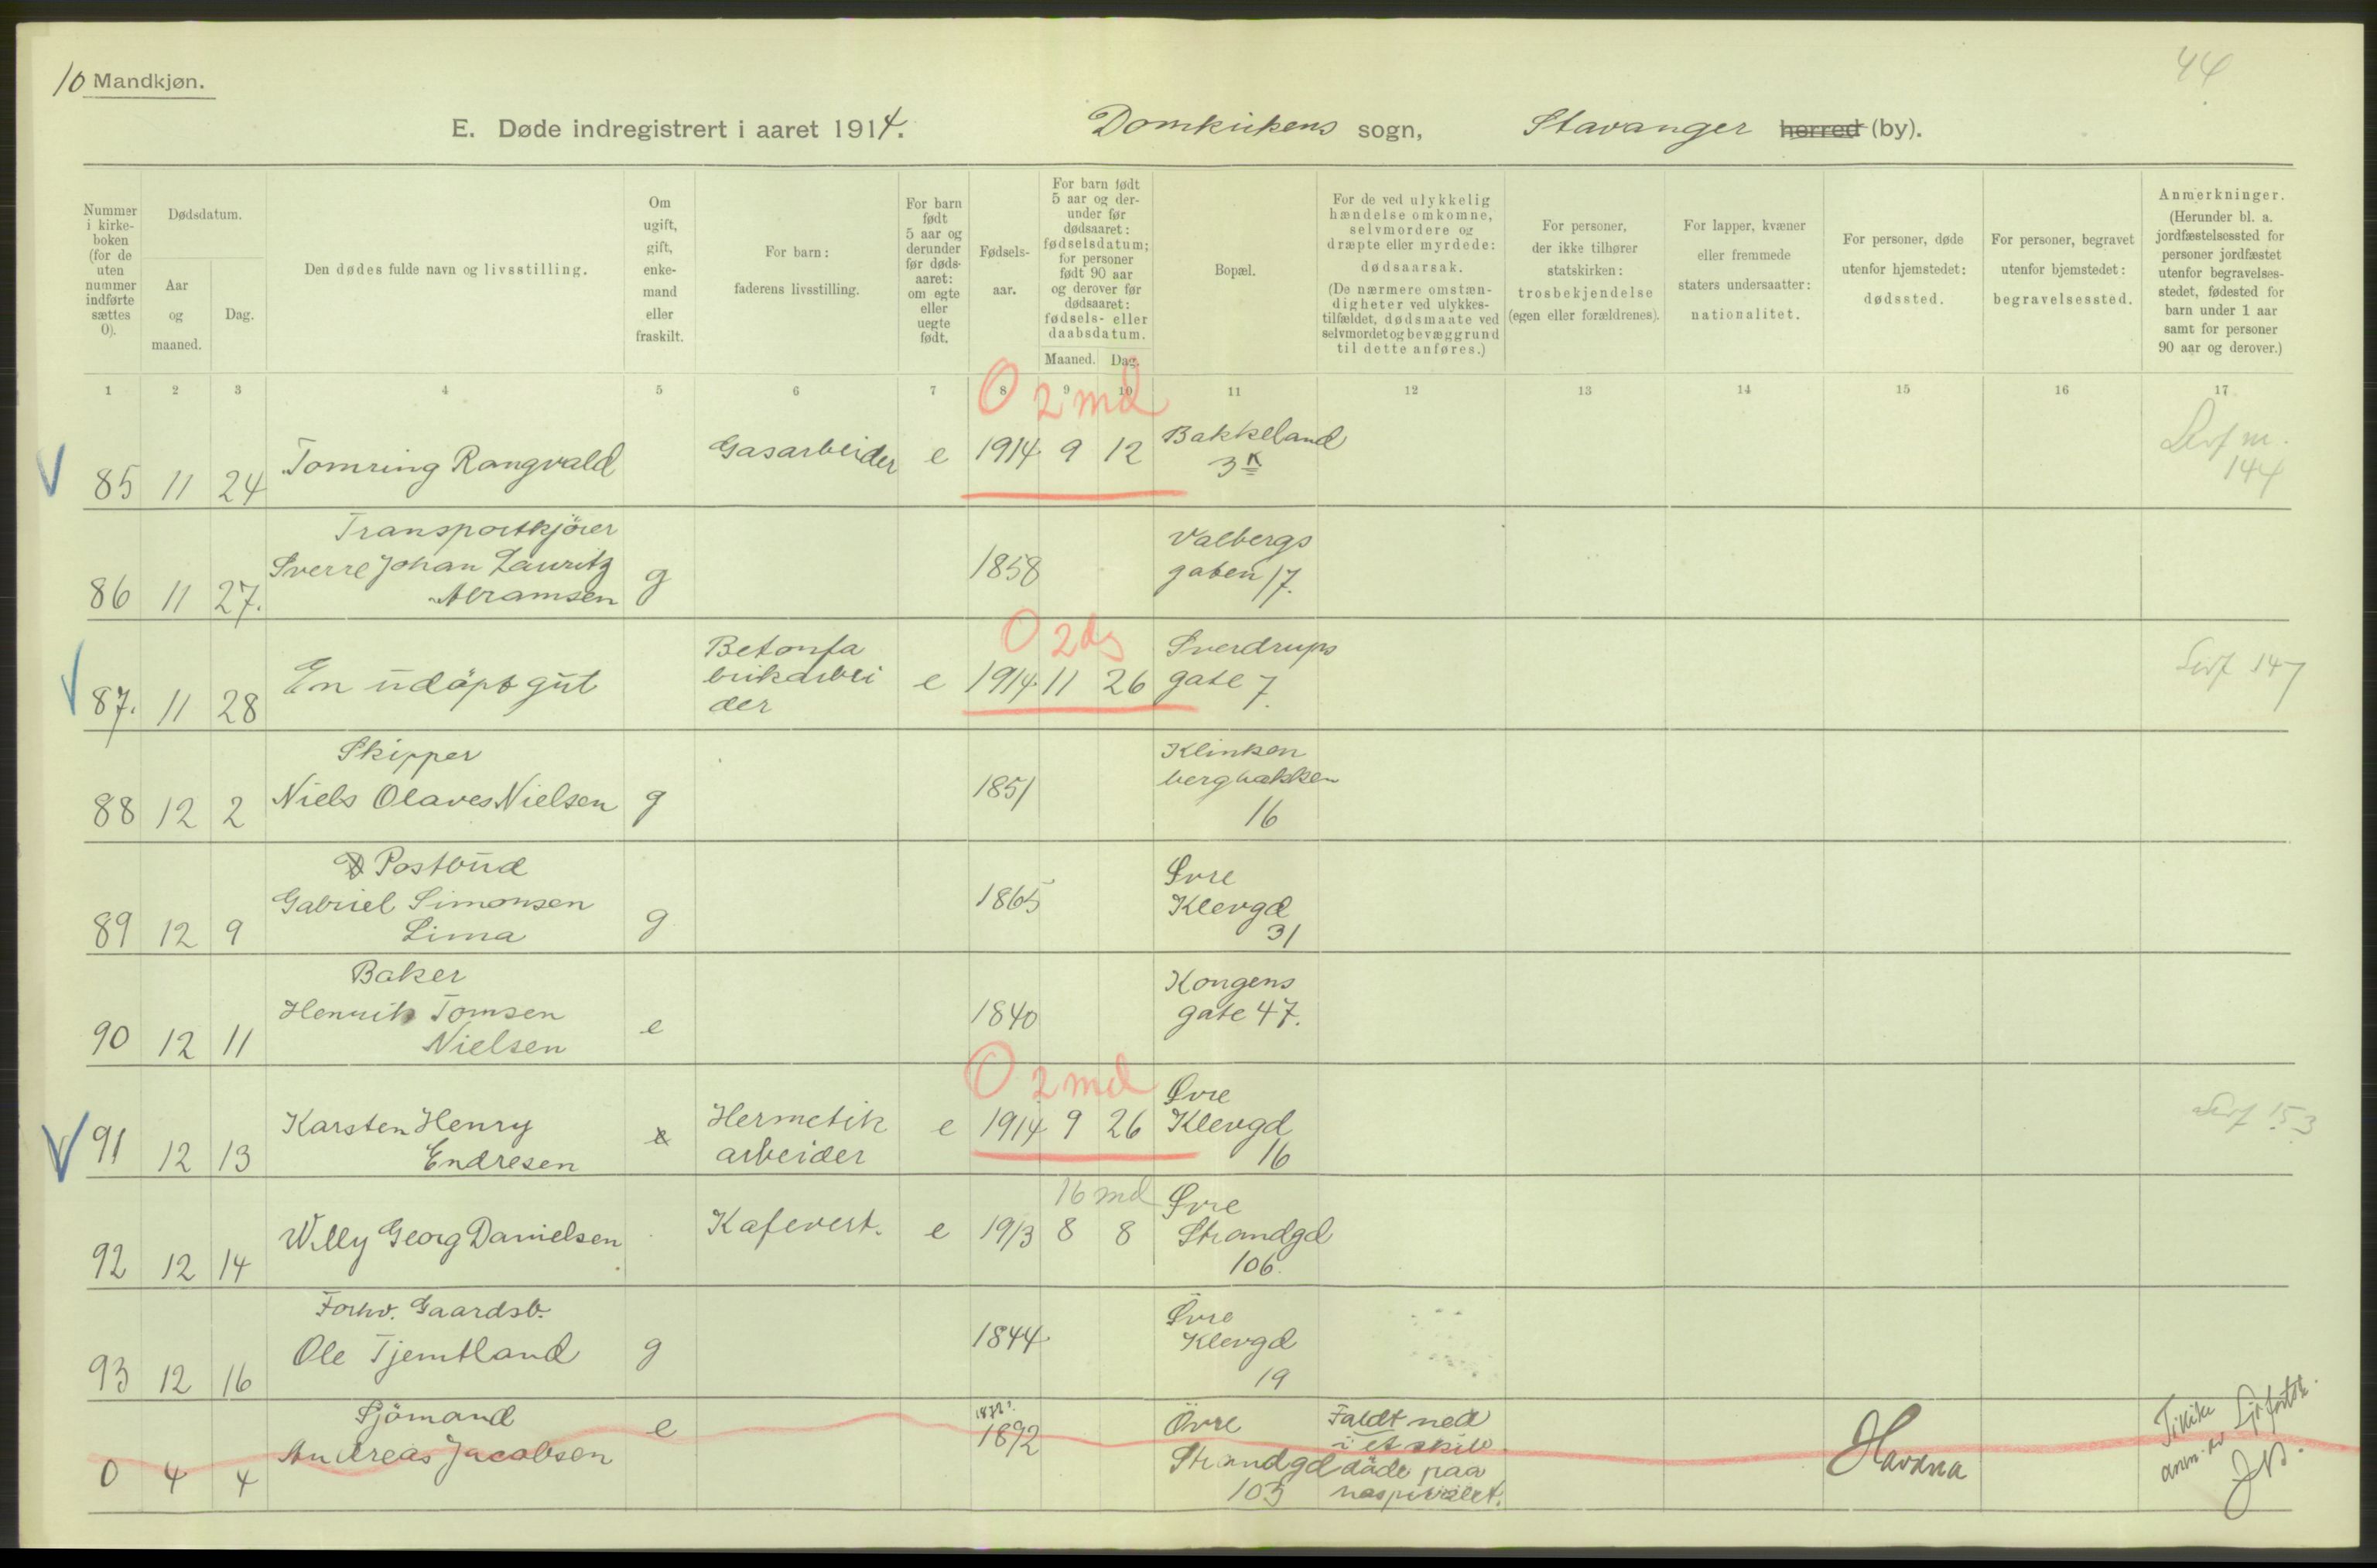 10 Mandkjøn.
44
E. Døde indregistrert i aaret 1914. Domkirkens sogn, Stavanger herred (by).
Nummer i kirke-boken (for de uten nummer indførte sættes 0).
Dødsdatum.
Aar og maaned.
Dag.
Den dødes fulde navn og livsstilling.
Om ugift, gift, enke-mand eller fraskilt.
For barn: faderens livsstilling.
For barn født 5 aar og derunder før døds-aaret: om egte eller uegte født.
Fødsels-aar.
For barn født 5 aar og der-under før dødsaaret: fødselsdatum; for personer født 90 aar og derover før dødsaaret: fødsels- eller daabsdatum.
Maaned. Dag.
Bopæl.
For de ved ulykkelig hændelse omkomne, selvmordere og dræpte eller myrdede: dødsaarsak. (De nærmere omstæn-digheter ved ulykkes-tilfældet, dødsmaate ved selvmordet og bevæggrund til dette anføres.)
For personer, der ikke tilhører statskirken: trosbekjendelse (egen eller forældrenes).
For lapper, kvæner eller fremmede staters undersaatter: nationalitet.
For personer, døde utenfor hjemstedet: dødssted.
For personer, begravet utenfor hjemstedet: begravelsessted.
Anmerkninger. (Herunder bl. a. jordfæstelsessted for personer jordfæstet utenfor begravelses-stedet, fødested for barn under 1 aar samt for personer 90 aar og derover.)
1 2 3 4 5 6 7 8 9 10 11 12 13 14 15 16 17
0 2 md
85 11 24 Tomring Rangvald Gasarbeider e 1914 9 12 Bakkeland 3 K 144
Transportkjörer
86 11 27. Sverre Johan Lauritz Abramsen g 1858 Valbergs gaten 17.
0 2 ds
87. 11 28 En udöpt gut Betonfa brikarbei der e 1914 11 26 Sverdrups gate 7. 147
Skipper
88 12 2 Niels Olaves Nielsen g 1851 Klinken bergbakken 16
Postbud
89 12 9 Gabriel Simonsen Lima g 1865 Øvre Klevgd 31
Baker
90 12 11 Henrik Tomsen Nielsen e 1840 Kongens gate 47.
0 2 md
91 12 13 Karsten Henry Endresen e Hermetik arbeider e 1914 9 26 Øvre Klevgd 16 153
16 md
92 12 14 Willy Georg Danielsen Kafevert. e 1913 8 8 Øvre Strandgd 106.
Forhv. Gaardsb.
93 12 16 Ole Tjemtland g 1844 Øvre Klevgd 19
Sjömand
0 4 4 Andreas Jacobsen e 1892 Övre Strandgd 103 Faldt ned i et skib döde paa hospitalet. Havana